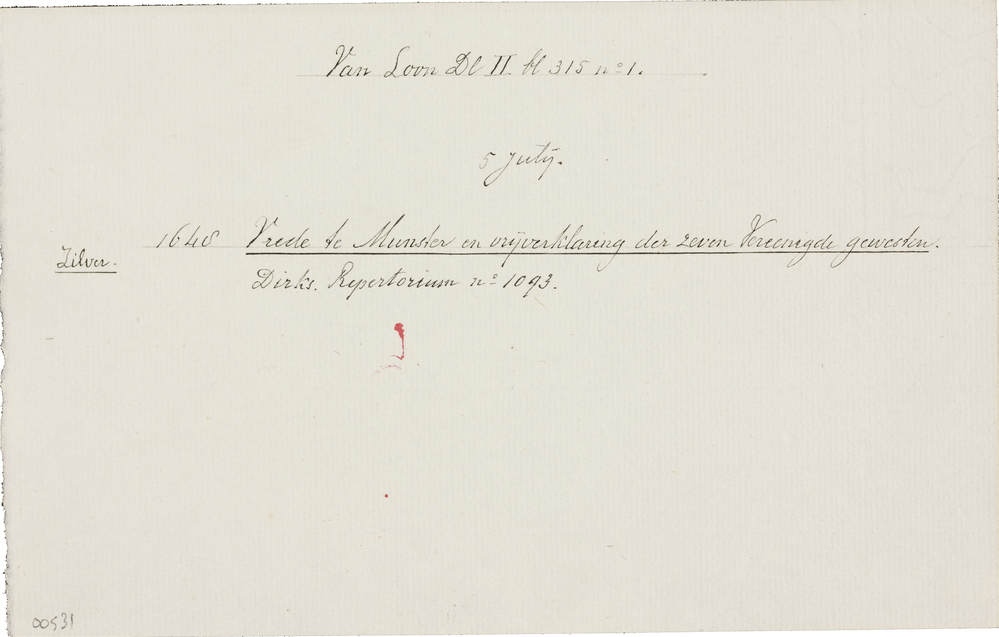 Van Loon Dl II. bl 315 no 1.
5 July.
1648 Vrede te Munster en vrijverklaring der zeven Vereenigde gewesten.
Zilver.
Dirks. Repertorium no 1093.
00531